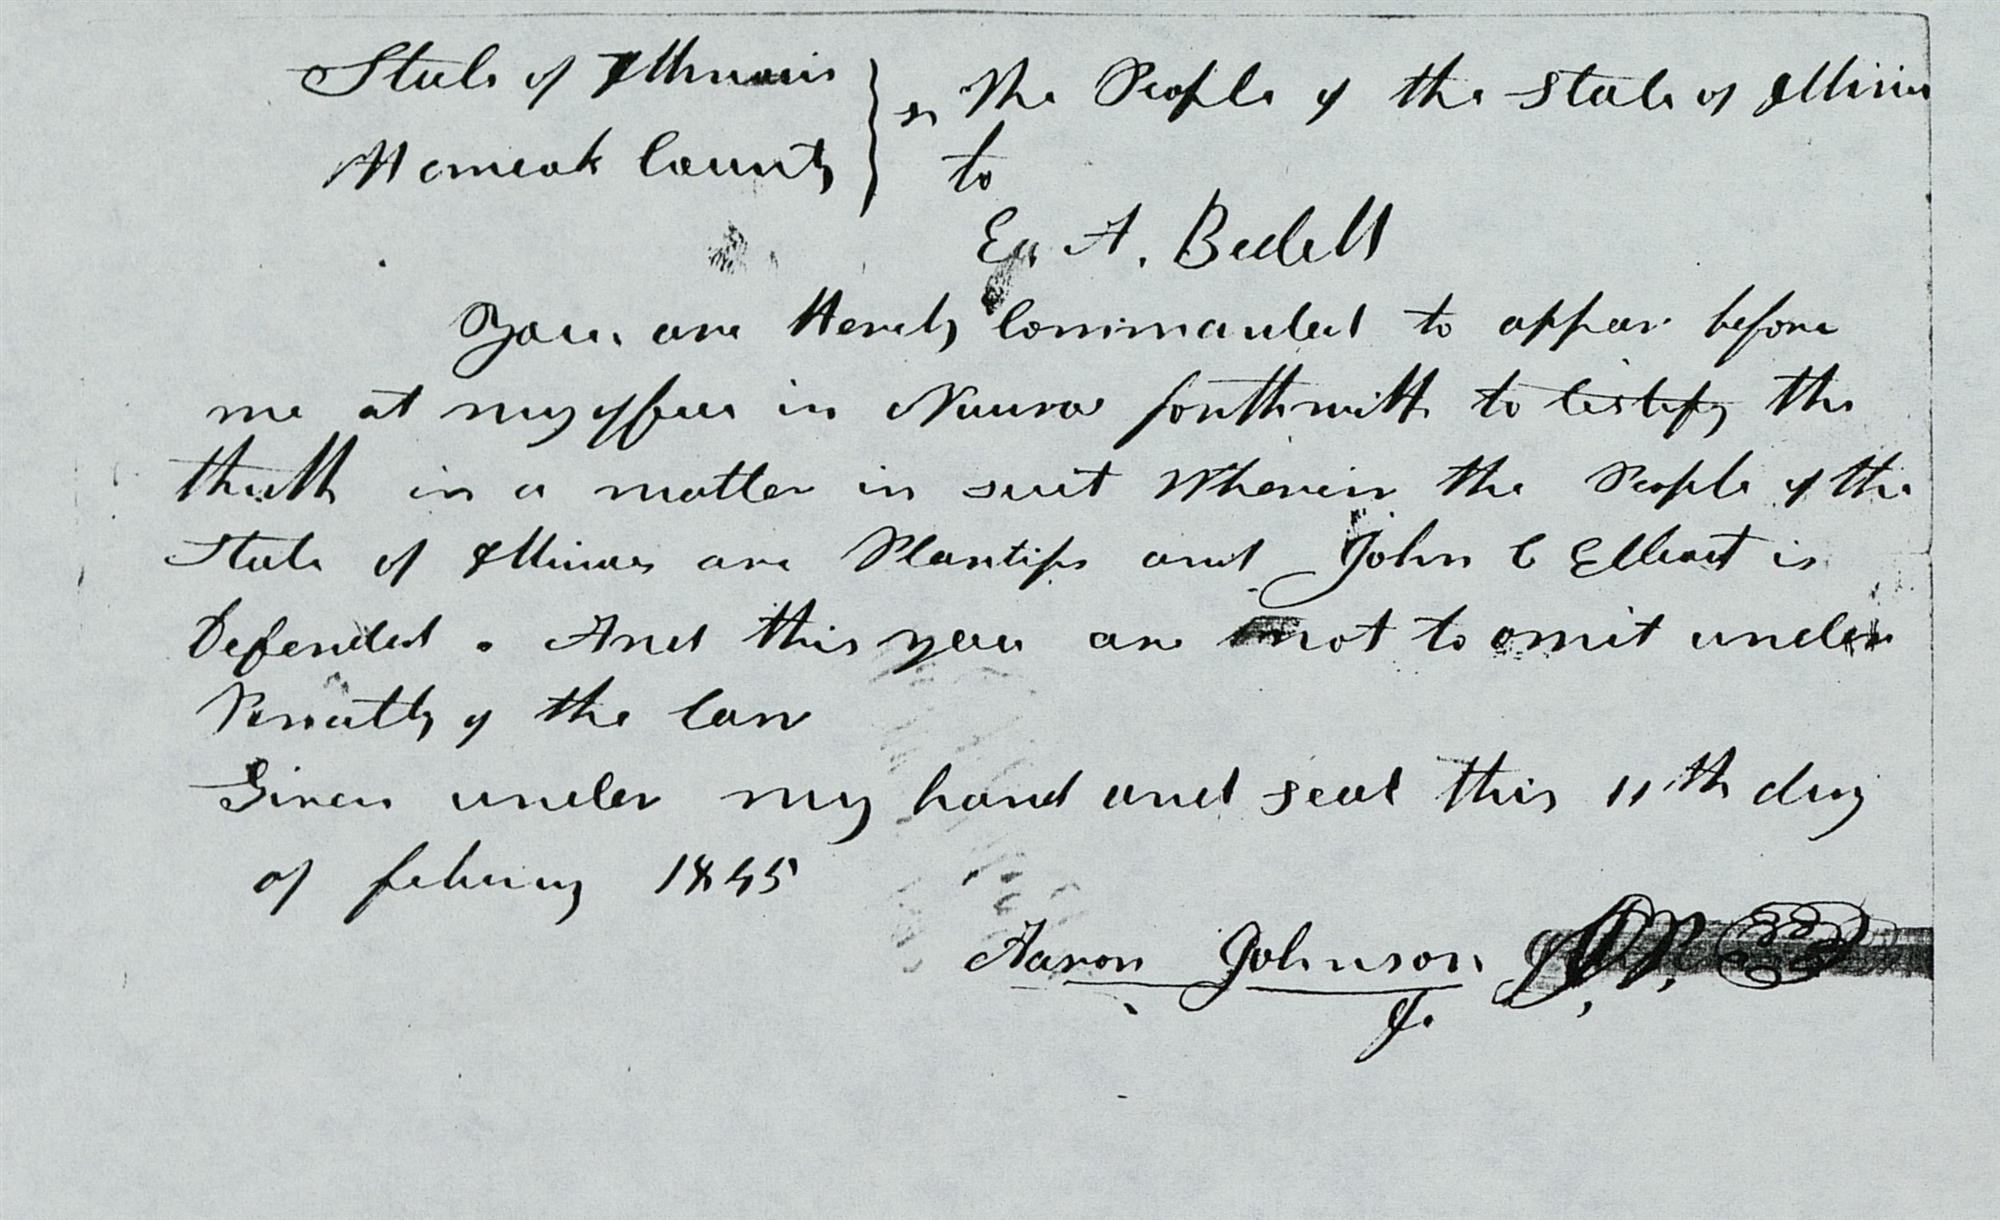 State of Illinois } ss The People of the State of Illinois
Hancock County } to
Ea. A. Bedell
You are Hereby Commanded to appear before
me at my office in Nauvoo forthwith to testify the
thruth in a matter in suit Wherein the People of the
State of Illinois are Plantifs and John C Elliott is
Defended. And this you are not to omit under
Penalty of the Law
Given under my hand and seal this 11th day
of febuary 1845
Aaron Johnson J.P.